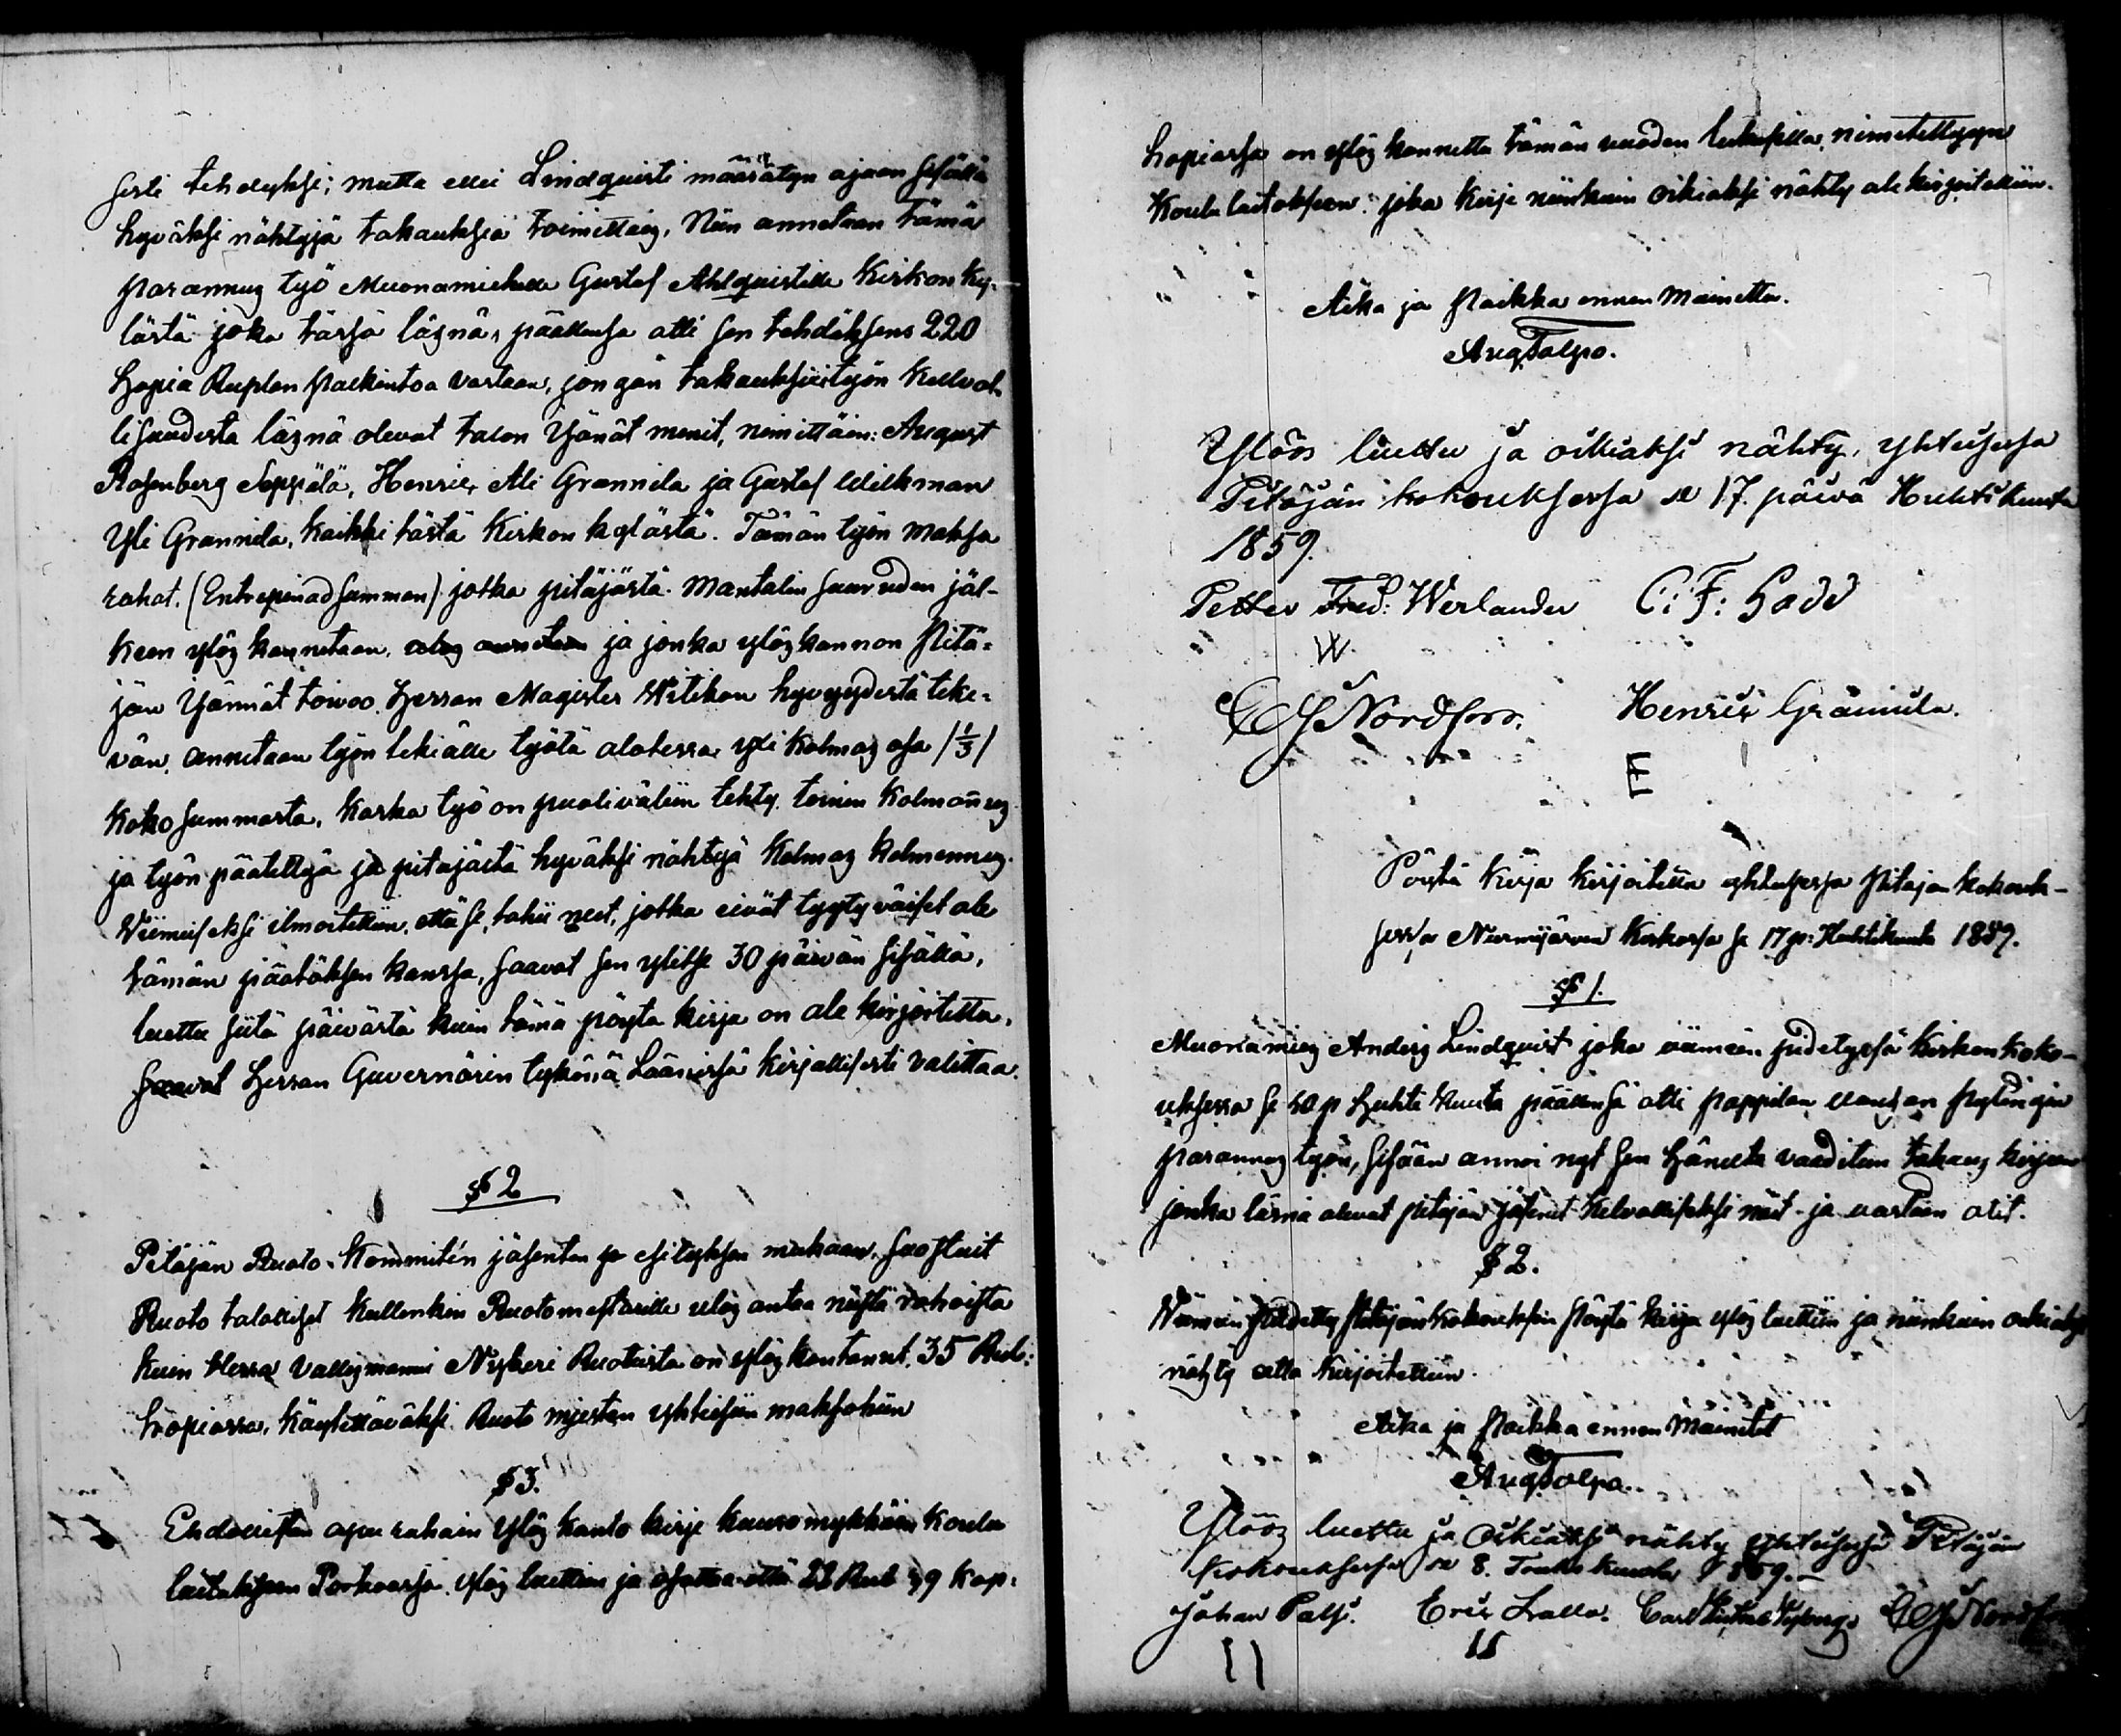 sesti tehdyksi; mutta ellei Lindquisti määrätyn ajaan sisällä
hyväksi nähtyjä takauksia toimittais, Niin annetaan tämä
parannus työ Muonamiehelle Gustaf Ahlquistille Kirkon ky-
lästä joka tässä läsnä, päällensä otti sen tehdäksens 220
Hopia Ruplan palkintoa vastaan, jongan takauksiityön kelwol-
lisuudesta läsnä olevat talon Isänät menit, nimittäin: August
Rosenberg Seppälä, Henric Ali Grannila ja Gustaf Wilkman
Yli Grannila, kaikki tästä Kirkon kylästä. Tämän työn maksa
rahat. (Entreprenad summan) jotka pitäjästä Mantalin suuruden jäl-
keen ylös kannetaan, ja jonka ylöskannon Pitä-
jän Isännät toivoo Herran Magister Witikan hyvyydestä teke-
vän, annetaan työn tekiälle työtä alotessa yxi kolmas osa /1/3/
koko summasta, koska työ on puoliväliin tehty toinen kolmannes
ja työn päätettyä ja pitäjästä hyväksi nähtyä kolmas kolmannes.
Viimeiseksi ilmoitettiin, että se, tahi neet, jotka eivät tyytyväiset ole
tämän päätöksen kanssa, saavat sen ylitse 30 päivän sisällä,
luettu siitä päivästä kuin tämä pöytä kirja on ala kirjoitettu,
saavat Herran Guvernörin tykönä Läänissä kirjallisesti valittaa.
§ 2
Pitäjän Ruoto-Kommitén jäsenten ja esityksen mukaan, suostuit
Ruoto talolliset kullenkin Ruotomestarille ulos antaa niistä rahoista
kuin Herra Vallesmanni Nyberi Ruotuista on ylös kantanut, 35 Rub:
hopiassa, käytettäväksi Ruoto miesten yhteisiin maksohiin
§ 3.
Ehdollisten apu rahain ylös kanto kirje kuuromykkäin koulu
laitoksen Porkoossa, ylös luettiin ja osottaa että 22 Rub 39 kop:
hopiassa on ylös kannettu tämän vuoden nimitettyyn
koulu laitokseen: joka kirje niinkuin oikiaksi nähty ale kirjoitettiin.
Aika ja Paikka ennen Mainettu.
Aug Talpo.
Ylöös luettu ja oikiaksi nähty, yhteisessä
Pitäjän kokouksessa se 17. päivä Huhtikuuta
1859.
Petter Fred: Werlander C: F: Gadd
W.
Nordfors. Henric Grännila.
E
Pöytä kirja kirjoitettu yhteisessä Pitäjän kokouk-
sessa Nurmijärven Kirkossa se 17 p: Huhtikuuta 1859.
§ 1.
Muonamies Anders Lindqvist joka viimein pidetyssä Kirkon koko-
uksessa se 10 p Huhti kuuta päällensä otti Pappilan vanhan Pytingin
parannus työn, sisään annoi nyt sen häneltä vaaditun takaus kirjan
jonka läsnä olevat Pitäjän jäsenet kelvolliseksi näit ja vastaan otit.
§ 2.
Viimein pidetty Pitäjän kokouksen Pöytä kirja ylös luettiin ja niinkuin oikiaksi
nähty alla kirjoitettiin.
Aika ja Paikka ennen Mainitet
Aug Talpo.
Ylöös luettu ja Oikiaksi nähty yhteisessä Pitäjän
kokouksessa se 8. Touko kuuta 1859.
Johan Palsi. Eric Lalla. Carl Gustaf Nyberg. Nordfors